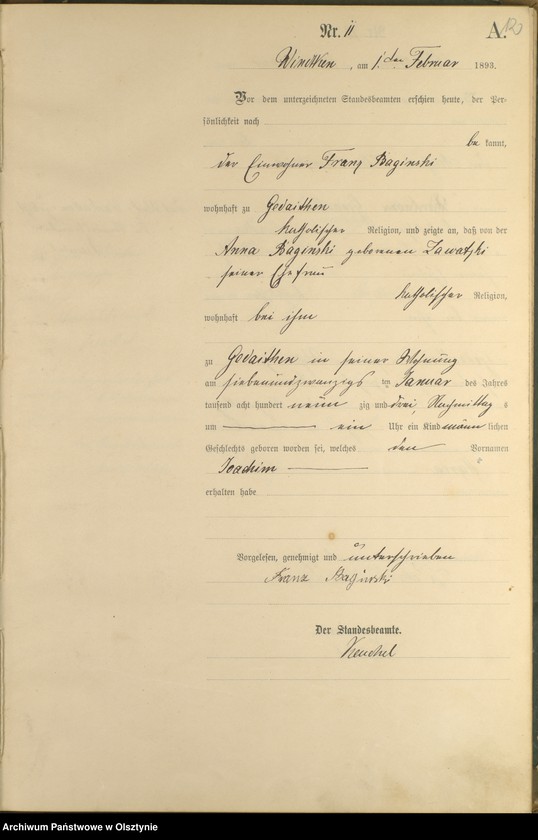 Nr. 11
A.
, am 1. ten Februar 1893.
Vor dem unterzeichneten Standesbeamten erschien heute, der Per-
sönlichkeit nach
be kannt,
der Einwohner Franz Baginski
wohnhaft zu Godaithen
katholischer Religion, und zeigte an, daß von der
Anna Baginski geborenen Zawatzki
seiner Ehefrau
katholischer Religion,
wohnhaft bei ihm
zu Godaithen in seiner Wohnung
am siebenundzwanzigs ten Januar des Jahres
tausend acht hundert neun zig und drei, Nachmittag s
um ein Uhr ein Kind männ lichen
Geschlechts geboren worden sei, welches den Vornamen
Joachim
erhalten habe
Vorgelesen, genehmigt und unterschrieben
Franz Baginski
Der Standesbeamte.
Archiwum Państwowe w Olsztynie